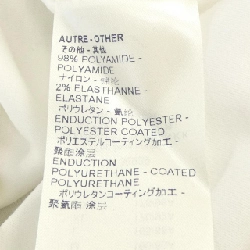 AUTRE - OTHER
その他 - 其他
98% POLYAMIDE -
POLYAMIDE
ナイロン - 锦纶
2% ELASTHANNE -
ELASTANE
ポリウレタン - 氨纶
ENDUCTION POLYESTER -
POLYESTER COATED
ポリエステルコーティング加工 -
聚酯 涂层
ENDUCTION
POLYURETHANE - COATED
POLYURETHANE
ポリウレタンコーティング加工 -
聚氨酯 涂层